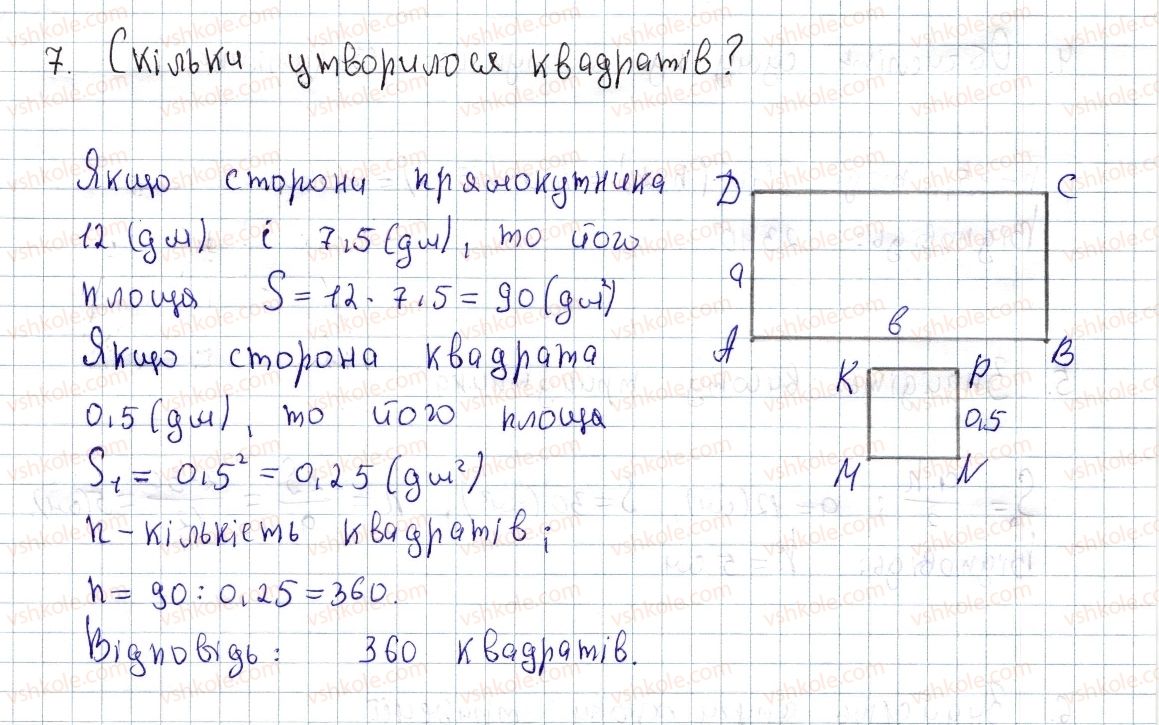 7. Скільки утворилося квадратів?
Якщо сторони прямокутника
12 (дм) і 7,5 (дм), то його
площа S = 12 · 7,5 = 90 (дм²)
Якщо сторона квадрата
0,5 (дм), то його площа
S₁ = 0,5² = 0,25 (дм²)
n – кількість квадратів;
n = 90 : 0,25 = 360.
Відповідь: 360 квадратів.
D C
a
в
A B
K P
0,5
M N
vshkole.com